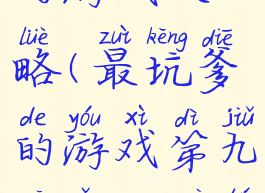 lüè zuì kēng diē
略(最坑爹
de yóu xì dì jiǔ
的游戏第九